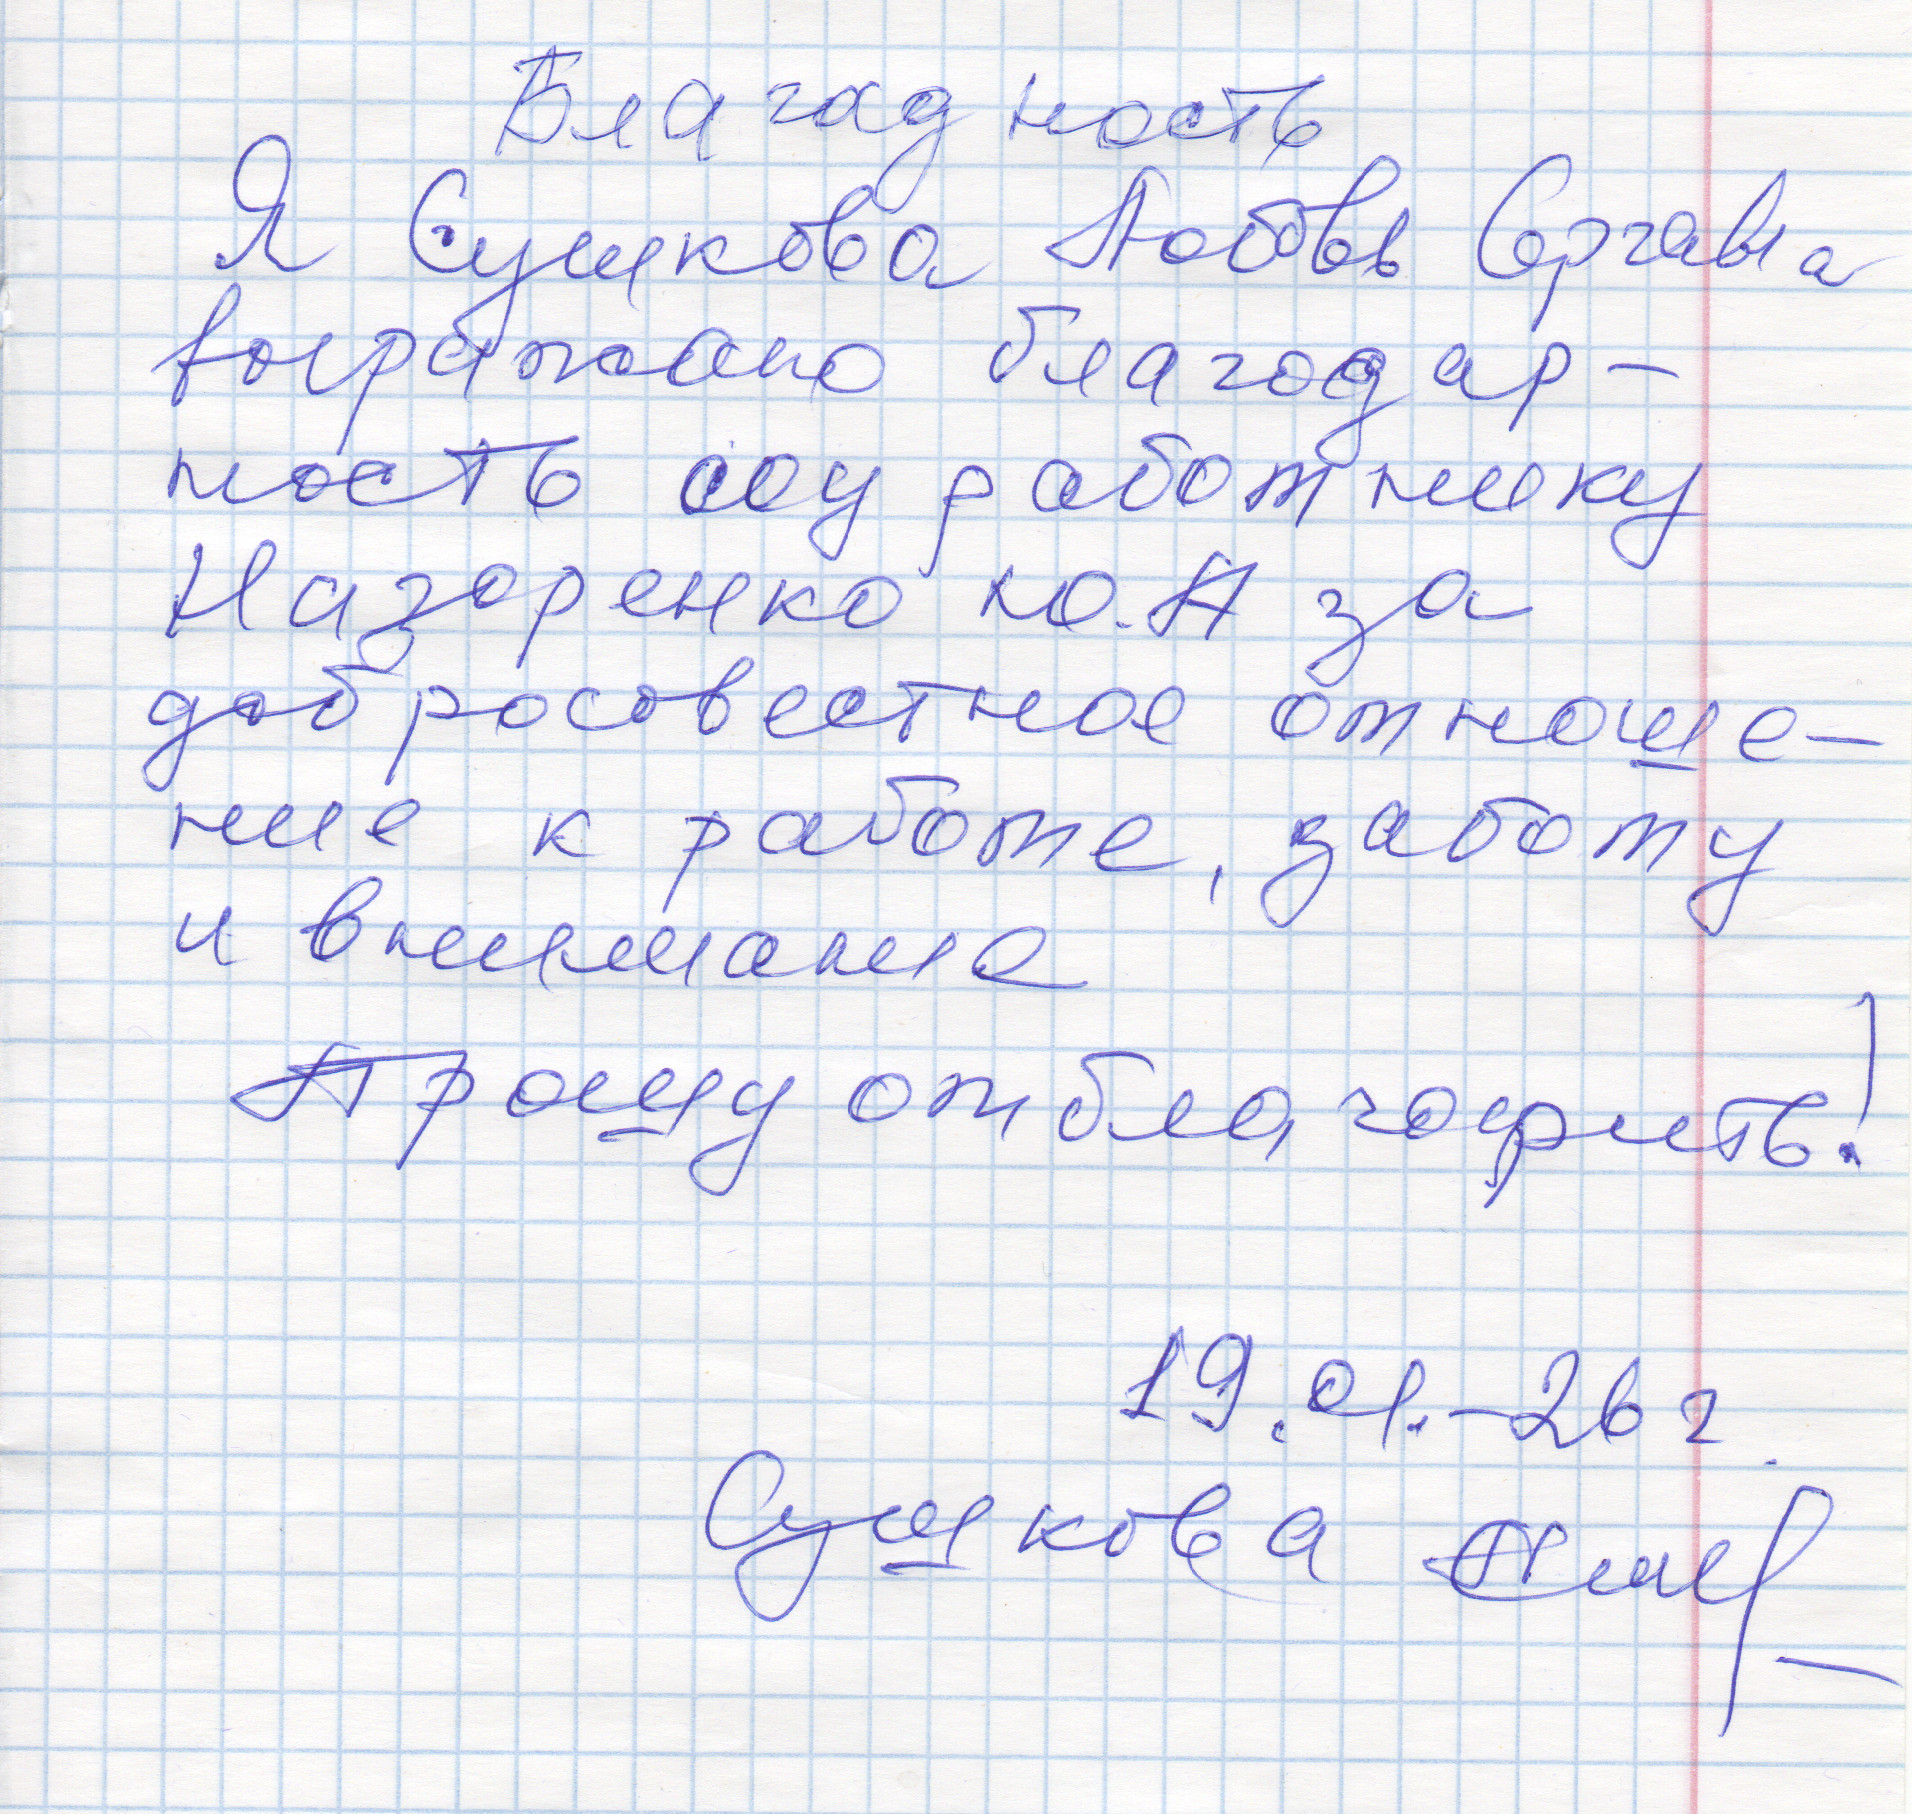 Благадность
Я Сушкова Любовь Сергавна
выражаю благодар-
ность соу работнику
Назоренко Ю.А за
добросовестное отноше-
ние к работе, заботу
и внимание
Прошу отблагодрить!
19.01.-26 г.
Сушкова